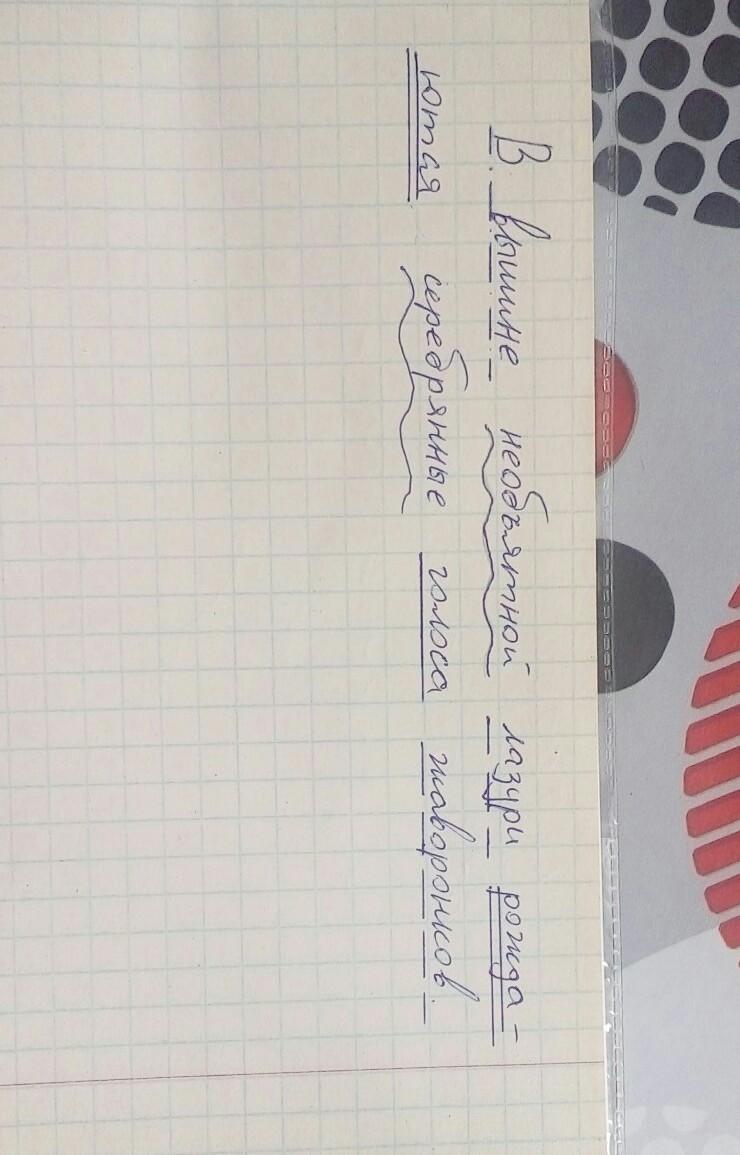 В вышине необъятной лазури рожда-
ютая серебрянные голоса жаворонков.